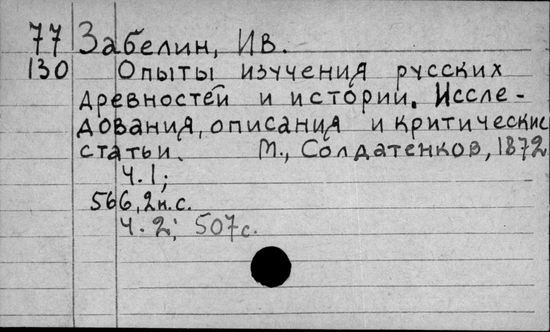 77 Забелин, Ив.
130 Опыты изучения русских
древностей и истории. Иссле-
дования, описания и критические
статьи. М., Солдатенков, 1872
Ч.1;
566, 2н.с.
Ч.2; 507с.